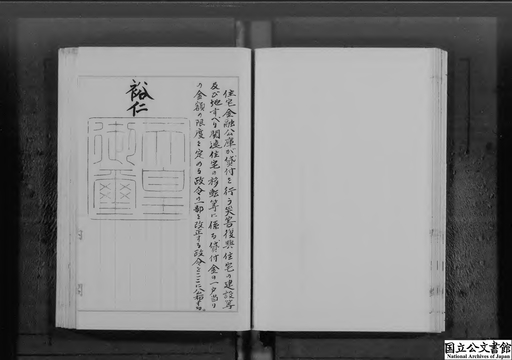 住宅金融公庫が貸付を行う災害復興住宅の建設等
及び地すべり関連住宅の移転等に係る貸付金の一戸当り
の金額の限度を定める政令の一部を改正する政令をここに公布する。
裕仁
天皇
御璽
国立公文書館
National Archives of Japan